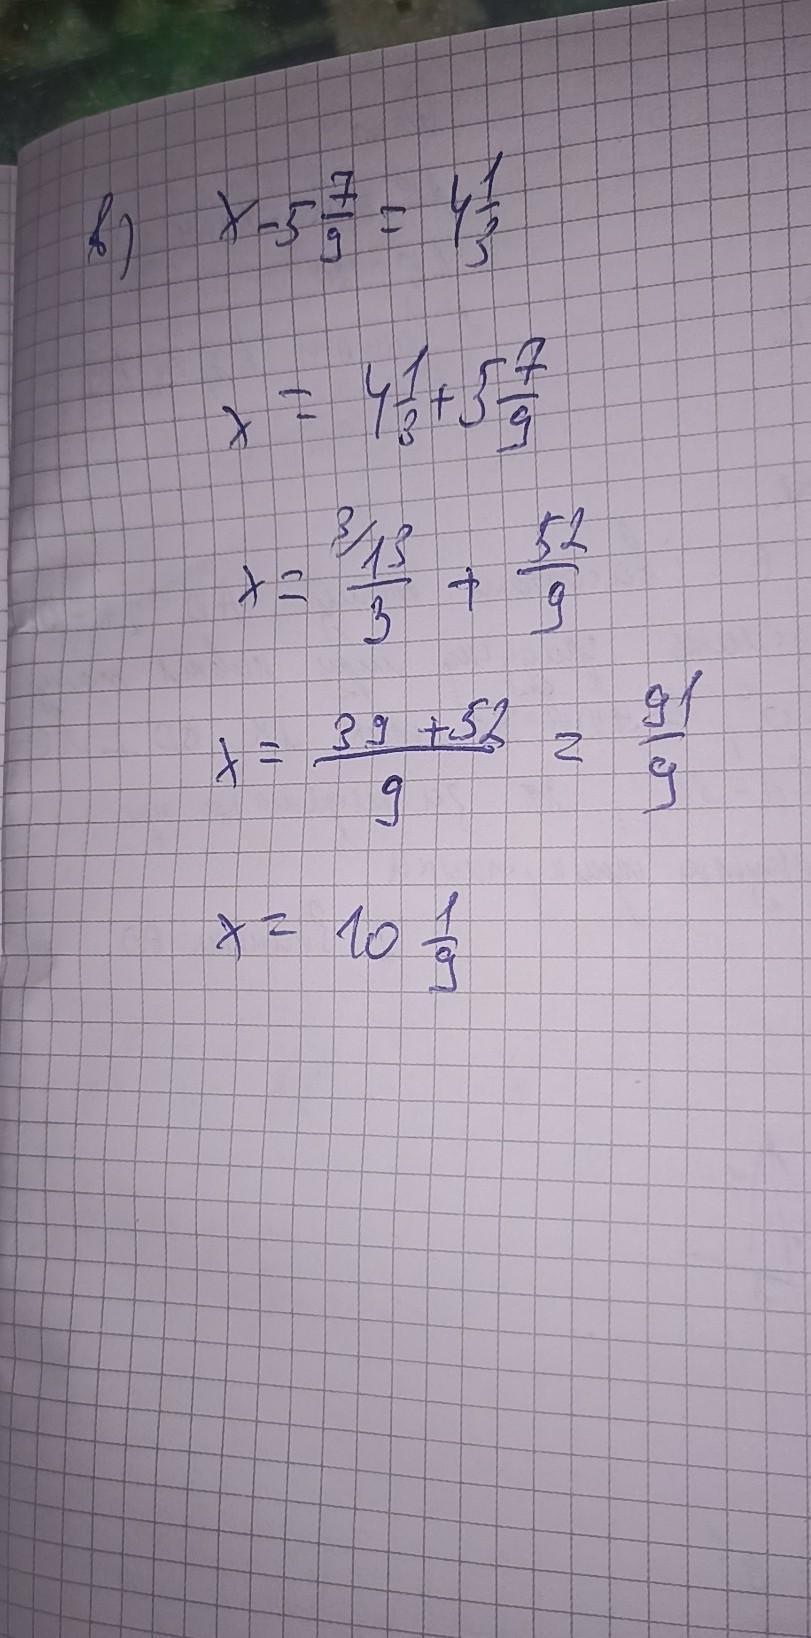 в) x - 5 7/9 = 4 1/3
x = 4 1/3 + 5 7/9
x = 3/ 13/3 + 52/9
x = 39 + 52/9 = 91/9
x = 10 1/9